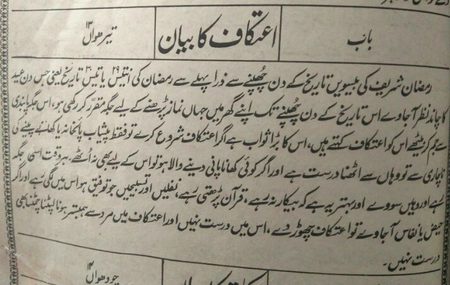 باب
اعتکاف کا بیان
تیرھواں ۱۳
رمضان شریف کی بیسویں تاریخ کے دن چھپنے سے ذرا پہلے سے رمضان کی انتیس ۲۹ یا تیس ۳۰ تاریخ یعنی جس دن عید
کا چاند نظر آجاوے اس تاریخ کے دن چھپنے تک اپنے گھر میں جہاں نماز پڑھنے کے لیے جگہ مقرر کر رکھی ہو، اس جگہ پابندی
سے جم کر بیٹھے اس کو اعتکاف کہتے ہیں، اس کا بڑا ثواب ہے اگر اعتکاف شروع کرے تو فقط پیشاب پائخانہ یا کھانے پینے کی
ناچاری سے تو وہاں سے اٹھنا درست ہے اور اگر کوئی کھانا پانی دینے والا ہو تو اس کے لیے بھی نہ اٹھے، ہر وقت اسی جگہ
رہے اور وہیں سووے اور بہتر یہ ہے کہ بیکار نہ رہے، قرآن پڑھتی رہے، نفلیں اور تسبیحیں جو توفیق ہو اس میں لگی رہے اور اگر
حیض یا نفاس آجاوے تو اعتکاف چھوڑ دے، اس میں درست نہیں اور اعتکاف میں مرد سے ہمبستر ہونا لپٹنا چمٹنا بھی
درست نہیں۔
چودھواں ۱۴